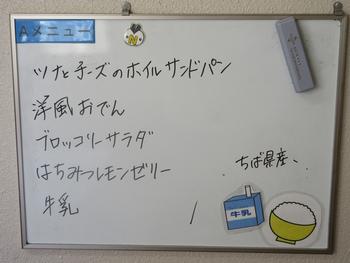 Aメニュー
ツナとチーズのホイルサンドパン
洋風おでん
ブロッコリーサラダ
はちみつレモンゼリー
牛乳
ちば県産、
牛乳